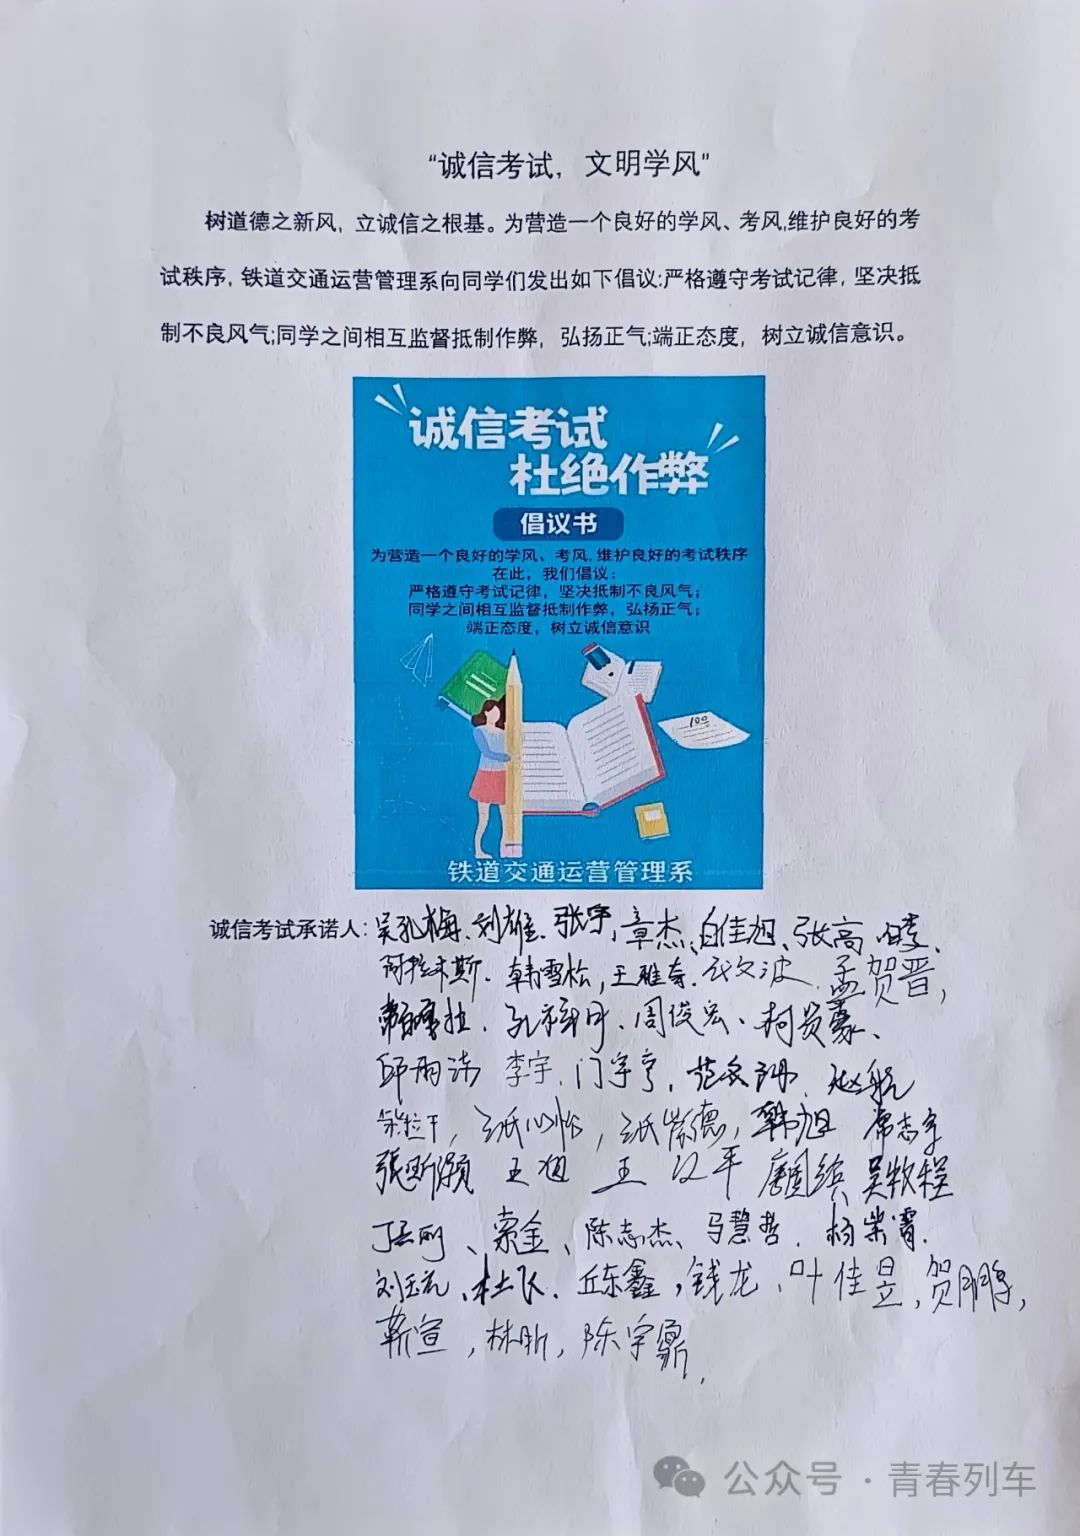 “诚信考试，文明学风”
树道德之新风，立诚信之根基。为营造一个良好的学风、考风,维护良好的考
试秩序，铁道交通运营管理系向同学们发出如下倡议:严格遵守考试记律，坚决抵
制不良风气;同学之间相互监督抵制作弊，弘扬正气;端正态度，树立诚信意识。
诚信考试
杜绝作弊
倡议书
为营造一个良好的学风、考风,维护良好的考试秩序
在此，我们倡议：
严格遵守考试记律，坚决抵制不良风气；
同学之间相互监督抵制作弊，弘扬正气；
端正态度，树立诚信意识
100
铁道交通运营管理系
诚信考试承诺人：吴孔梅、刘雄、张宇，章杰、白佳旭、张高
韩雪松，王雅奇、孟贺晋，
周俊宏、柯贤豪、
邱雨涛 李宇、门宇亨，赵航
韩旭 席志宇
王旭 王汉平 吴牧程
索金、陈志杰、马慧哲．
杜飞．丘东鑫，钱龙．叶佳昱，贺鹏，
靳宣，林昕，陈宇鼎．
公众号·青春列车